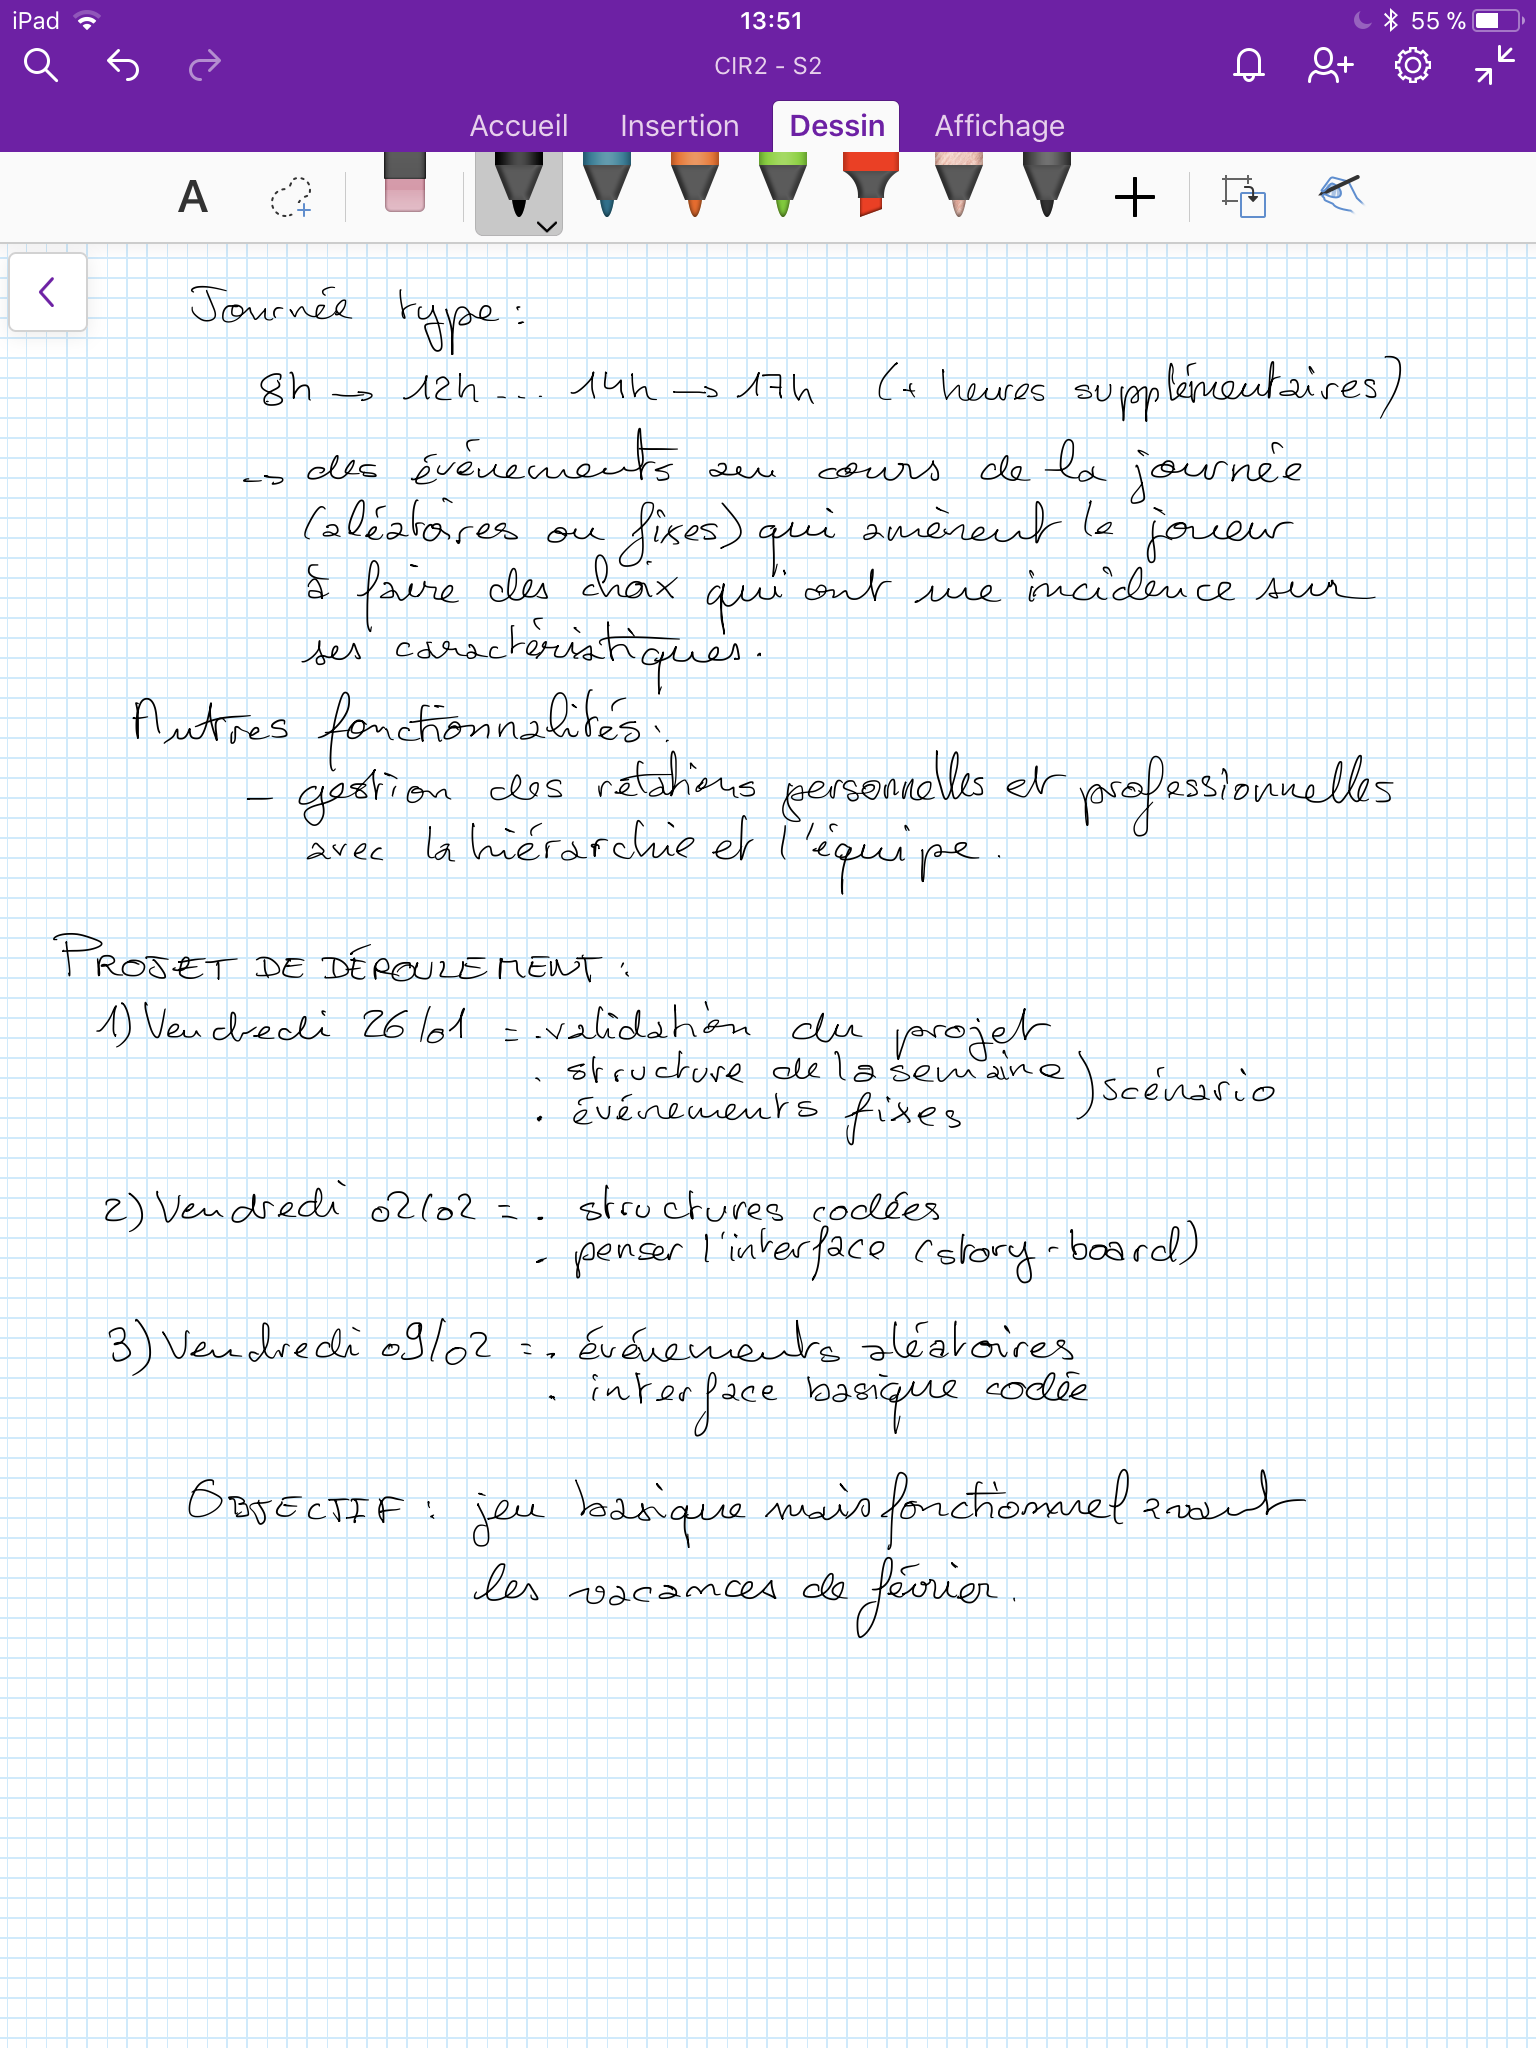 iPad 13:51 55 %
CIR2 - S2
Accueil Insertion Dessin Affichage
A
Journée type :
8h → 12h ... 14h → 17h (+ heures supplémentaires)
→ des événements au cours de la journée
(aléatoires ou fixes) qui amènent le joueur
à faire des choix qui ont une incidence sur
ses caractéristiques.
Autres fonctionnalités :
- gestion des relations personnelles et professionnelles
avec la hiérarchie et l'équipe.
PROJET DE DÉROULEMENT :
1) Vendredi 26/01 = . validation du projet
. structure de la semaine ) scénario
. événements fixes
2) Vendredi 02/02 = . structures codées
. penser l'interface (story-board)
3) Vendredi 09/02 = . événements aléatoires
. interface basique codée
OBJECTIF : jeu basique mais fonctionnel avant
les vacances de février.